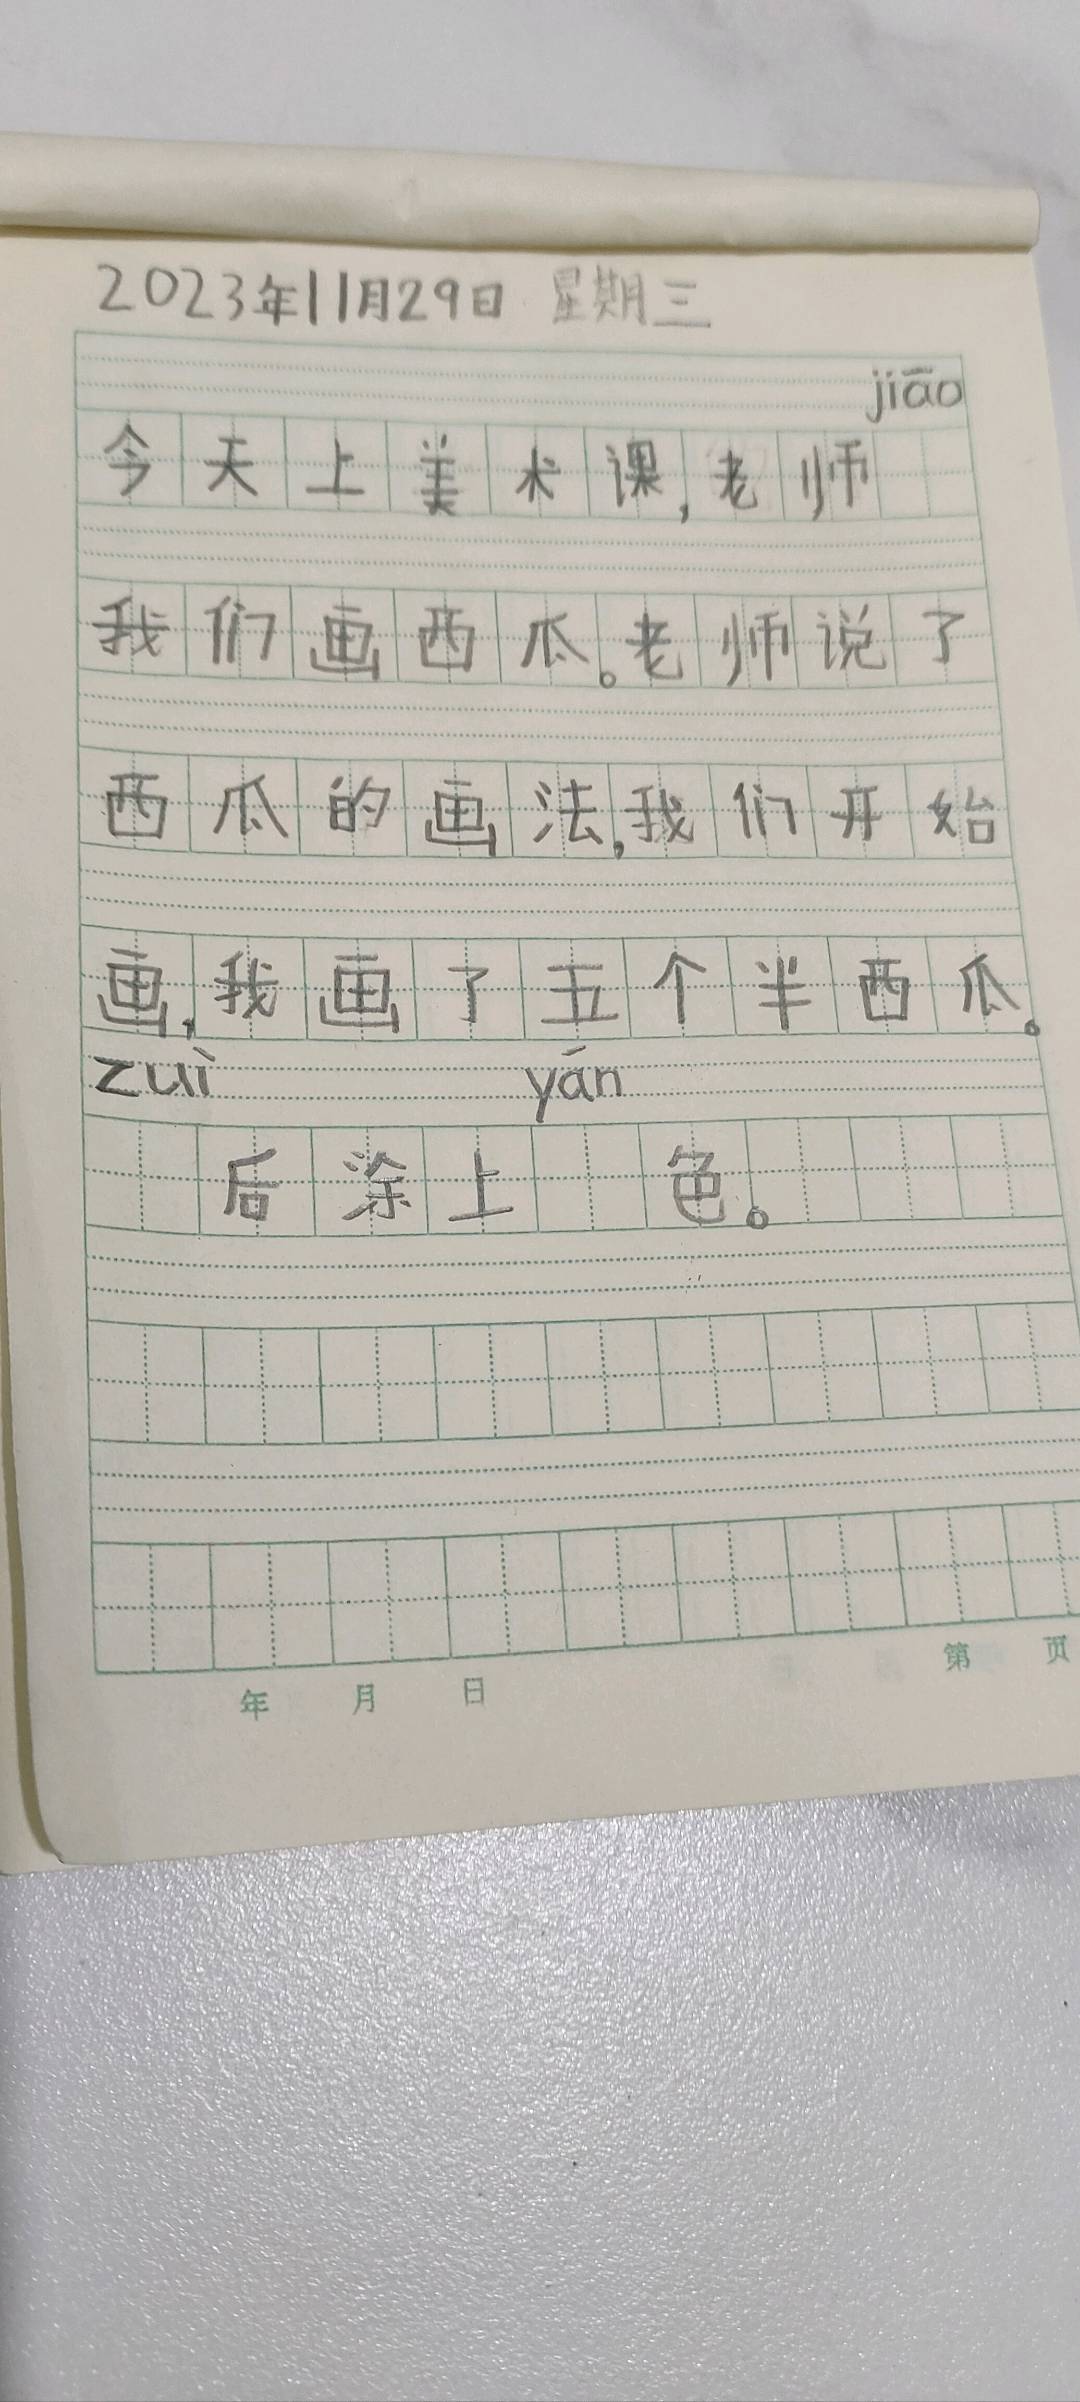 2023年11月29日 星期三
jiāo
今天上美术课,老师
我们画西瓜。老师说了
西瓜的画法,我们开始
画,我画了五个半西瓜。
zuì yán
后涂上 色。
年 月 日 第 页